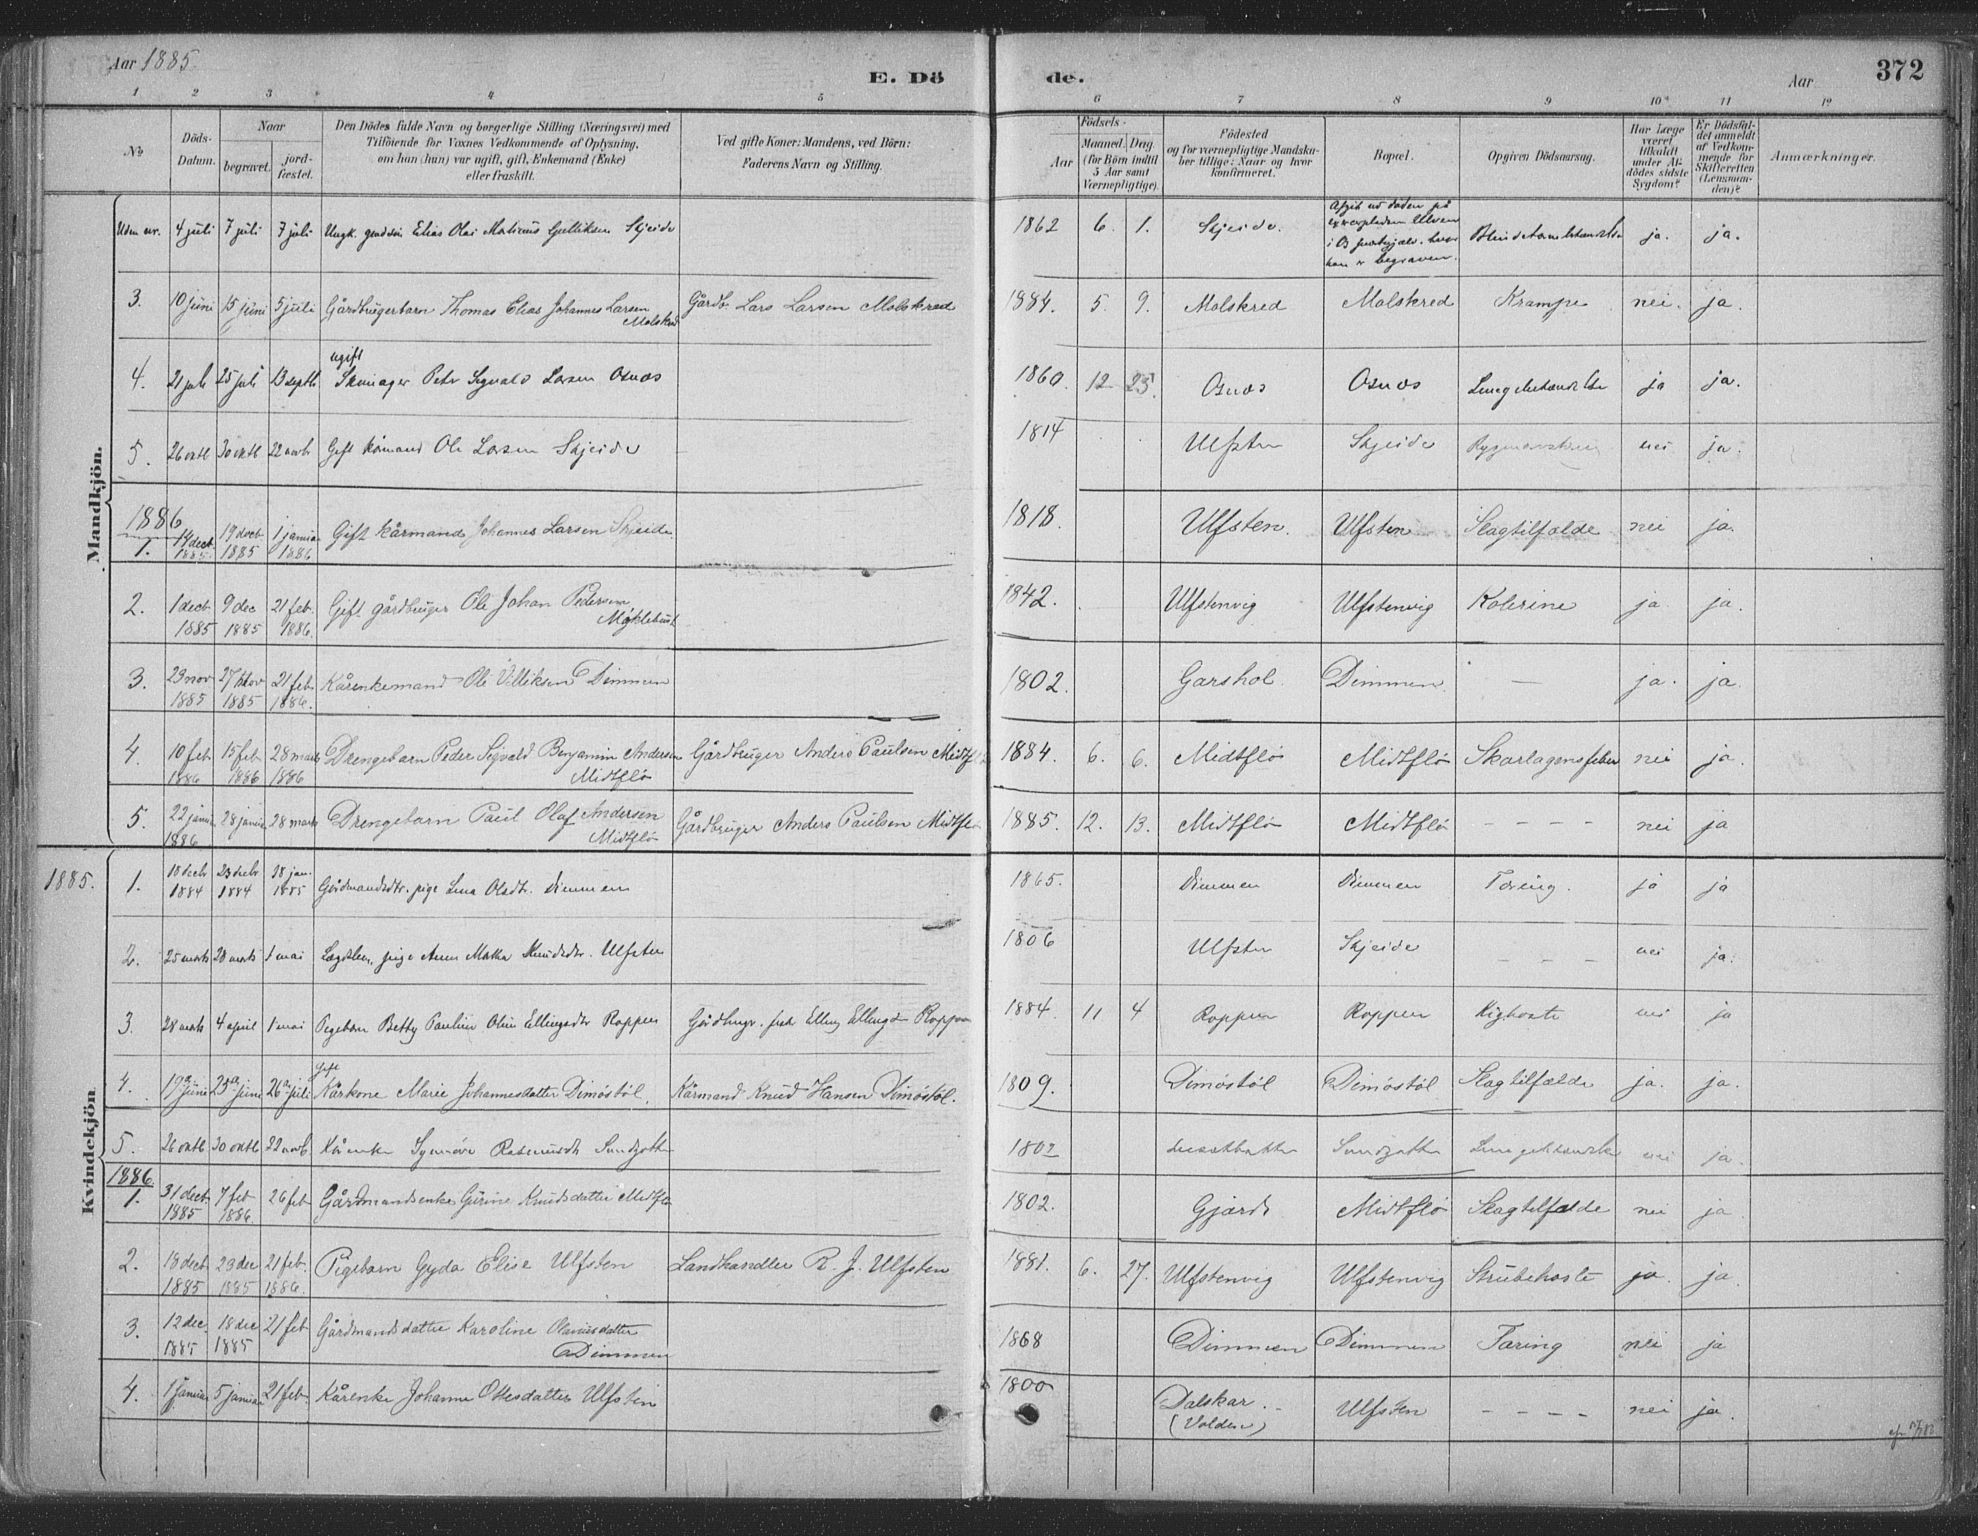 Aar 1885.
E. Dö
de.
Aar
372
1 2 3 4 5 6 7 8 9 10 11 12
№
Döds-Datum.
Naar
begravet.
jord-fæstet.
Den Dödes fulde Navn og borgerlige Stilling (Næringsvei) med
Tilföiende for Voxnes Vedkommende af Oplysning,
om han (hun) var ugift, gift, Enkemand (Enke)
eller fraskilt.
Ved gifte Koner: Mandens, ved Börn:
Faderens Navn og Stilling.
Födsels-
Aar
Maaned. Dag
(for Börn indtil
5 Aar samt
Værnepligtige).
Födested
og for værnepligtige Mandska-
ber tillige: Naar og hvor
konfirmeret.
Bopæl.
Opgiven Dödsaarsag.
Har Læge
været
tilkaldt
under Af-
dödes sidste
Sygdom?
Er Dödsfal-
det anmeldt
af Vedkom-
mende for
Skifteretten
(Lensman-
den)?
Anmærkninger.
Mandkjön.
Uden nr. 4 juli 7 juli 7 juli Ungk. Elias Olai Gulliksen Skjeide 1862 6. 1. Skjeide. i begraven. ja. ja.
3. 10 juni 15 juni 5 juli Gårdbrugerbarn Thomas Elias Johannes Larsen Molskred Gårdb. Lars Larsen Molskred 1884. 5. 9. Molskred Molskred Krampe nei. ja.
4. 21 juli 25 juli 13 septb ugift Petr Sigvald Larsen Osnæs 1860. 12. 25. Osnæs Osnæs ja ja.
5. 26 oktb 30 oktb 22 novb Gift kårmand Ole Larsen Skjeide 1814 Ulfsten Skjeide nei ja.
1886
1. 14 dect. 1885. 19 decb 1885 1 januar 1886 Gift kårmand Johannes Larsen Skjeide 1818. Ulfsten. Ulfsten Slagtilfælde nei ja.
2. 1 decb 1885 9 dec 1885 21 feb. 1886. Gift gårdbruger Ole Johan Pedersen Myklebust 1842. Ulfstenvig Ulfstenvig Kolerine ja. ja.
3. 23 nov 1885 27 nov 1885 21 feb 1886. Kårenkemand Ole Villiksen Dimmen 1802. Garshol. Dimmen. — ja. ja.
4. 10 feb 1886 15 feb 1886 28 marts 1886 Drengebarn Peder Sigvald Benjamin Andersen Midtflø Gårdbruger Anders Paulsen Midtflø 1884. 6. 6. Midtflø Midtflø Skarlagensfeber nei ja.
5. 22 januar 1886 28 januar 28 marts Drengebarn Paul Olaf Andersen Midtflø Gårdbruger Anders Paulsen Midtflø 1885. 12. 13. Midtflø Midtflø - - - - nei ja
Kvindekjön
1885. 1. 18 decb 1884 23 decb 1884 18 jan. 1885 Gårdmandsdtr. pige Lina Olsdtr. Dimmen 1865. Dimmen Dimmen Tæring. ja ja
2. 25 marts 28 marts 1 mai pige Anne Knudsdtr. Ulfsten 1806 Ulfsten Skjeide - - - nei ja.
3. 28 marts 4 april 1 mai Pigebarn Betty Pauline Oline Ellingsdtr Roppen Elling Roppen 1884. 11 4 Roppen Roppen Kighoste nei ja
4. 19de juni 25de juni 26de juli Gift Kårkone Marie Johannesdatter Dimöstöl. Kårmand Knud Hansen Dimöstöl. 1809. Dimöstöl Dimöstöl Slagtilfælde ja. ja.
5. 26 oktb 30 oktb 22 novb Kårenke Synnöve Rasmusdt 1802 nei ja.
1886.
1. 31 decb 1885 7 feb 1886 26 feb Gårdmandsenke Gurine Knudsdatter Midtflø 1802. Gjærde Midtflø Slagtilfælde nei ja
2. 18 decb 1885 23 dec 1885 21 feb. 1886. Pigebarn Gyda Elise Ulfsten Landhandler R. J. Ulfsten 1881. 6. 27. Ulfstenvig Ulfstenvig Strubehoste ja. ja.
3. 12 dec. 1885 18 dec 1885 21 feb Gårdmandsdatter Karoline Olausdatter Dimmen 1868 Dimmen Dimmen Tæring nei ja
4. 1 januar 5 januar 21 feb. Kårenke Johanne Ottesdatter Ulfsten 1800 Dalskar. (Volden) Ulfsten - - - - nei ja.